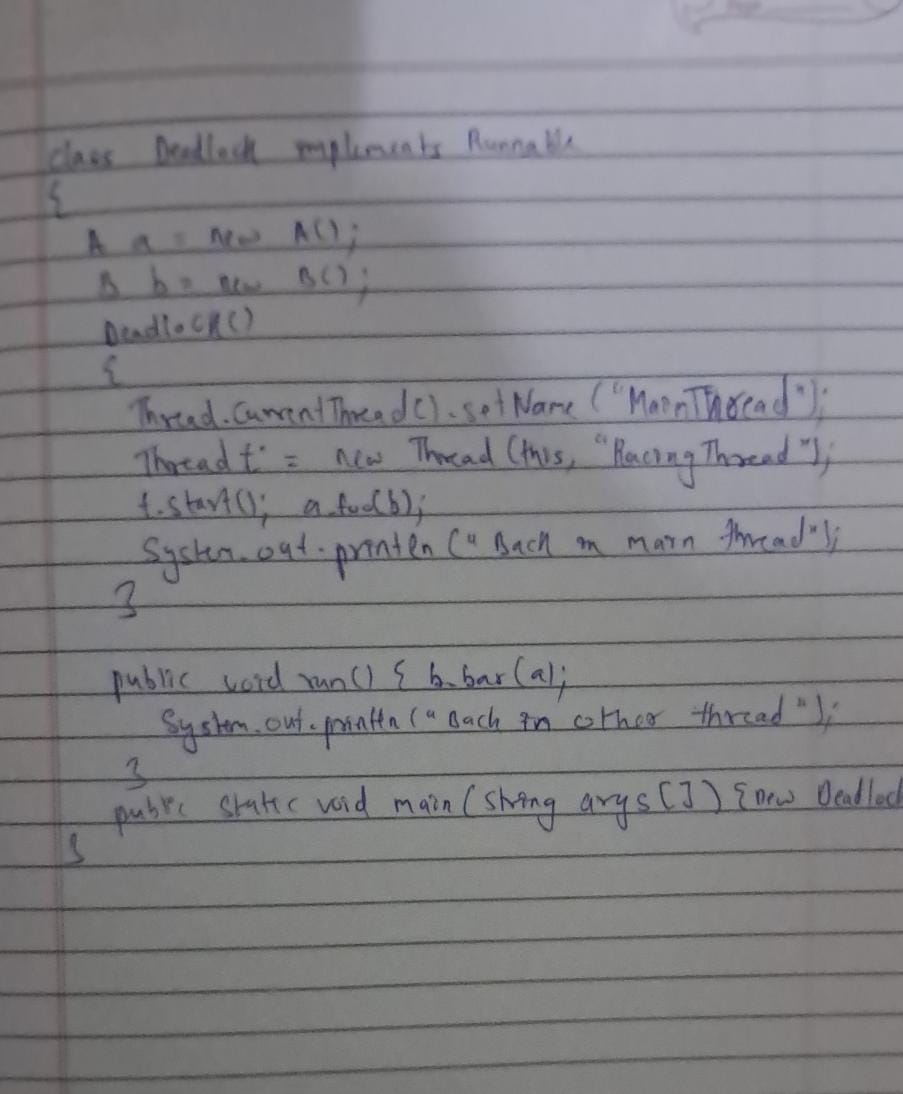 class Deadlock implements Runnable
{
A a = new A();
B b = new B();
Deadlock()
{
Thread.currentThread().setName ("MainThread");
Thread t = new Thread (this, "RacingThread");
t.start(); a.foo(b);
System.out.println ("Back in main thread");
}
public void run() { b.bar(a);
System.out.println ("Back in other thread");
}
public static void main (String args[]) {new Deadlock
}